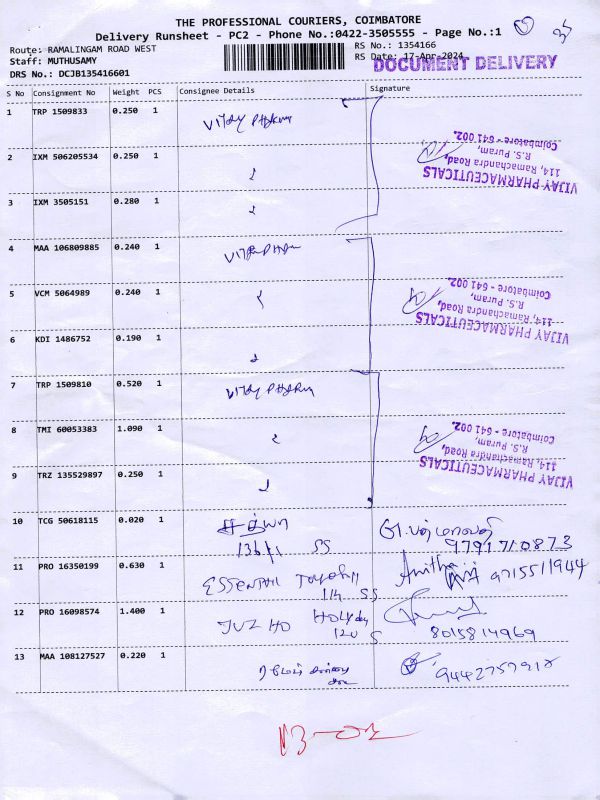 THE PROFESSIONAL COURIERS, COIMBATORE
Delivery Runsheet - PC2 - Phone No.:0422-3505555 - Page No.:1
Route: RAMALINGAM ROAD WEST RS No.: 1354166
Staff: MUTHUSAMY RS Date: 17-Apr-2024
DOCUMENT DELIVERY
DRS No.: DCJB135416601
S No Consignment No Weight PCS Consignee Details Signature
1 TRP 1509833 0.250 1 VIJAY PHARMA
2 IXM 506205534 0.250 1
3 IXM 3505151 0.280 1
VIJAY PHARMACEUTICALS
114, Ramachandra Road,
R.S. Puram,
Coimbatore - 641 002.
4 MAA 106809885 0.240 1
5 VCM 5064989 0.240 1
6 KDI 1486752 0.190 1
VIJAY PHARMACEUTICALS
114, Ramachandra Road,
R.S. Puram,
Coimbatore - 641 002.
7 TRP 1509810 0.520 1 VIJAY PHARM
8 TMI 60053383 1.090 1
9 TRZ 135529897 0.250 1
VIJAY PHARMACEUTICALS
114, Ramachandra Road,
R.S. Puram,
Coimbatore - 641 002.
10 TCG 50618115 0.020 1
SS 9791710873
11 PRO 16350199 0.630 1 Anitha 9715511944
114 SS
12 PRO 16098574 1.400 1 Holiday
120 S 8015814969
13 MAA 108127527 0.220 1